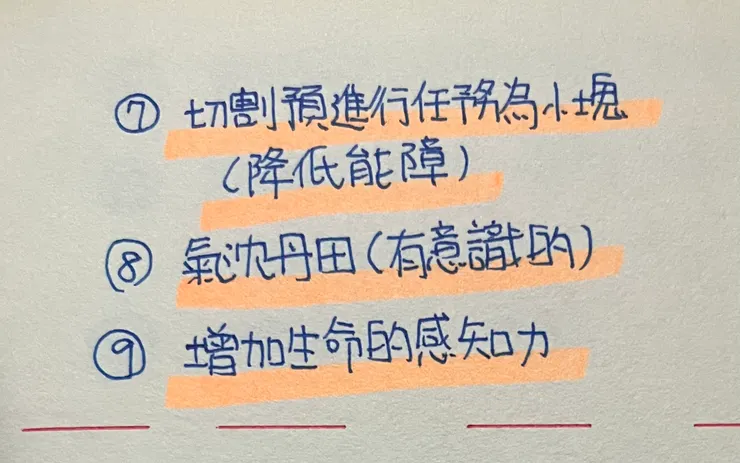 ⑦ 切割預進行任務為小塊
(降低能障)
⑧ 氣沈丹田(有意識的)
⑨ 增加生命的感知力